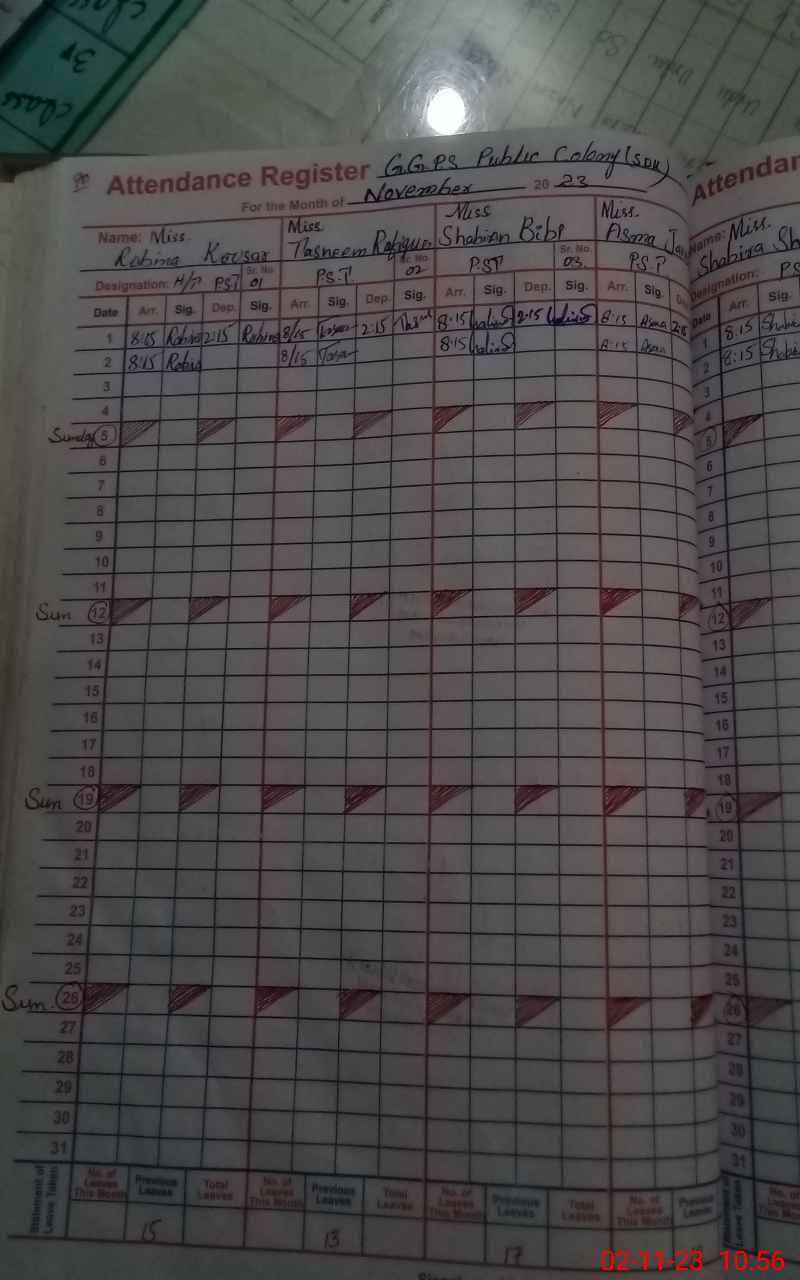 class
3r
class
Attendance Register G.G.P.S Public Colony (SDK)
For the Month of November 2023
Name: Miss. Robina Kousar
Miss Tasneem
Miss Shabian Bibi
Miss. Asma
Designation: H/T P.S.T Sr. No. 01
P.S.T. Sr. No. 02
P.S.T Sr. No. 03.
P.S.T
Date Arr. Sig. Dep. Sig. Arr. Sig. Dep. Sig. Arr. Sig. Dep. Sig. Arr. Sig.
1 8:15 2:15 8/15 2:15 8:15 2:15 8:15 Asma 2:15
2 8:15 8/15 8:15 8:15
3
4
Sunday 5
6
7
8
9
10
11
Sun 12
13
14
15
16
17
18
Sun 19
20
21
22
23
24
25
Sun. 26
27
28
29
30
31
Statement of Leave Taken
No. of Leaves This Month Previous Leaves Total Leaves No. of Leaves This Month Previous Leaves Total Leaves No. of Leaves This Month Previous Leaves Total Leaves No. of Leaves This Month Previous Leaves
15 13 17
Attendan
Name: Miss.
Shabira Sh
Designation: PS
Date Arr. Sig.
1 8:15
2 8:15
3
4
5
6
7
8
9
10
11
12
13
14
15
16
17
18
19
20
21
22
23
24
25
26
27
28
29
30
31
02-11-23 10:56